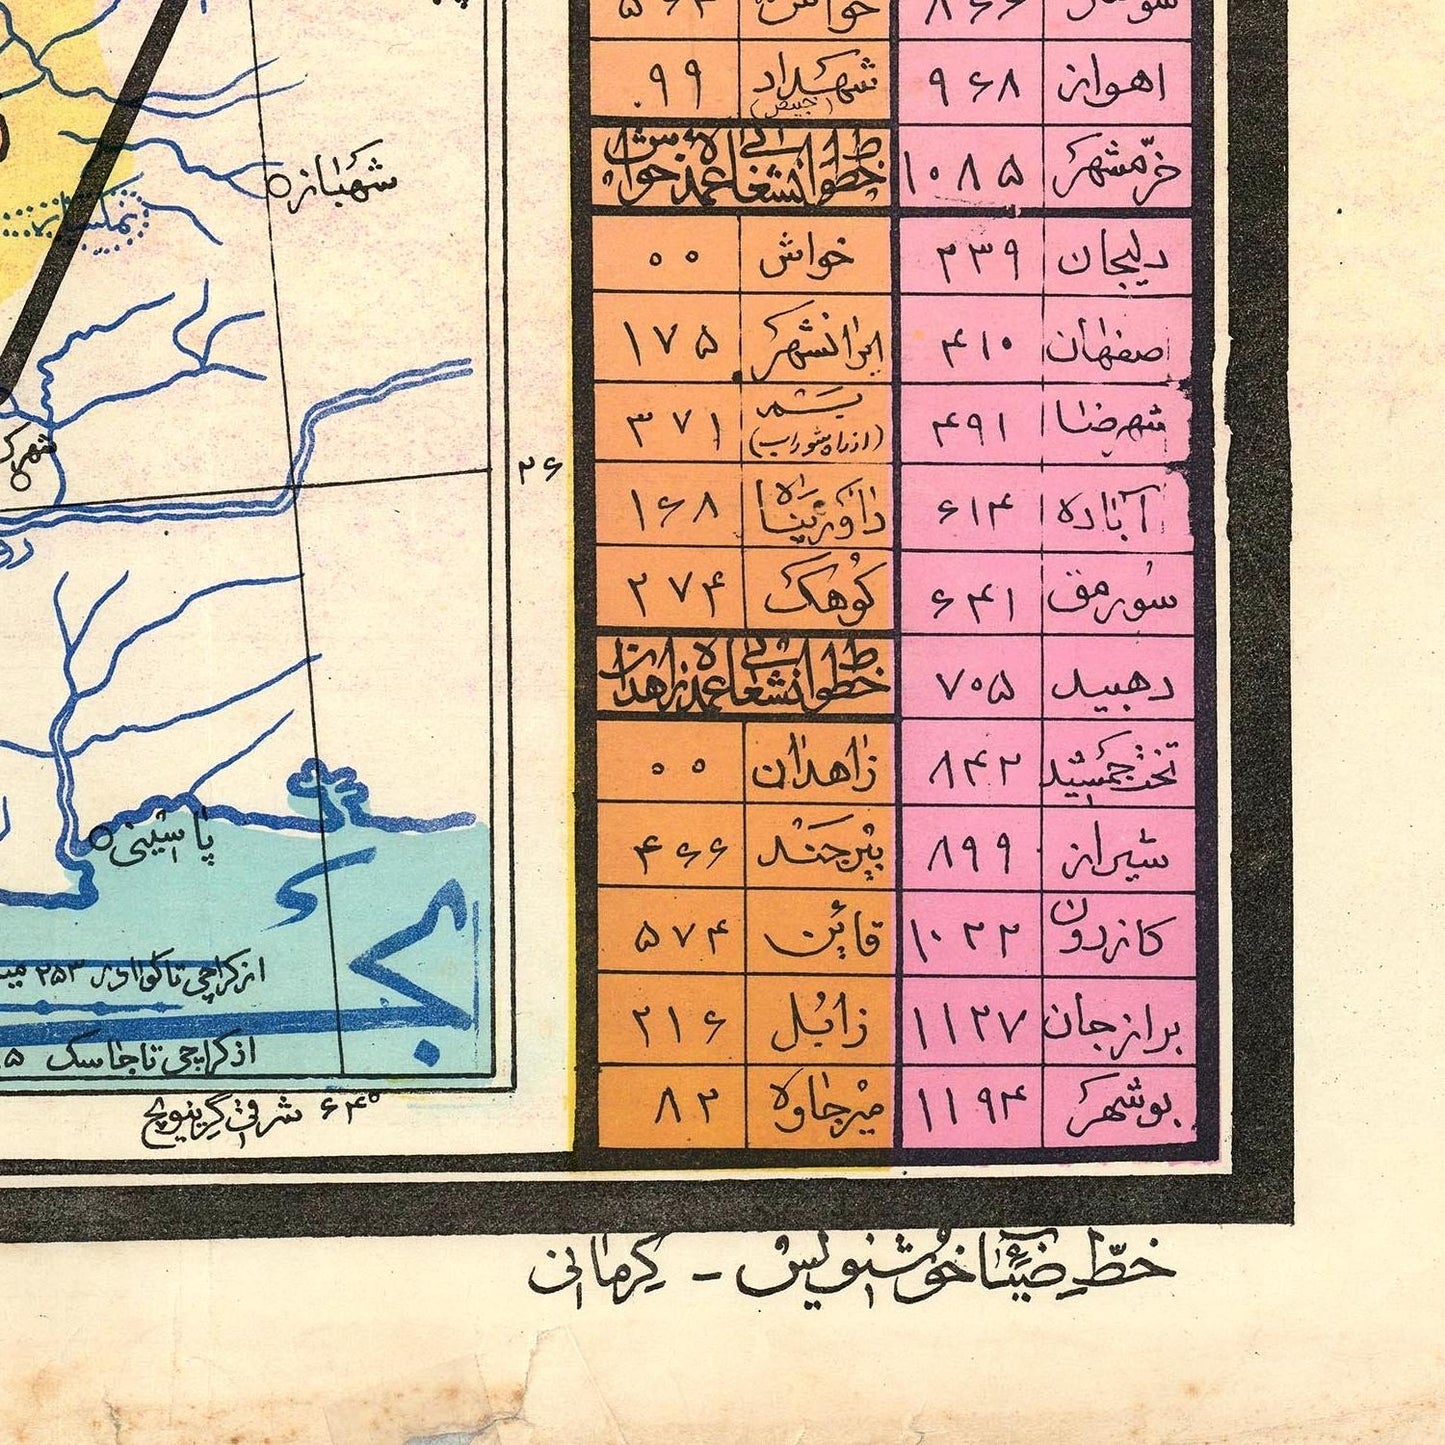 اهواز ۹۶۸
خرّمشهر ۱۰۸۵
دلیجان ۳۳۹
اصفهان ۴۱۰
شهرضا ۴۹۱
آباده ۶۱۴
سورمق ۶۴۱
دهبید ۷۰۵
تخت جمشید ۸۴۲
شیراز ۸۹۹
کازرون ۱۰۲۲
برازجان ۱۱۲۷
بوشهر ۱۱۹۴
شهداد ۹۹
(خبیص)
خطوط انشعابی عمده خواش
خواش ۰۰
ایرانشهر ۱۷۵
(از راه سوراب) ۳۷۱
داورپناه ۱۶۸
کوهک ۲۷۴
خطوط انشعابی عمده زاهدان
زاهدان ۰۰
بیرجند ۴۶۶
قائن ۵۷۴
زابل ۲۱۶
میرجاوه ۸۲
شهبازه
۲۶
پاسینی
از کراچی تا گوادر ۲۵۳
از کراچی تا جاسک
۶۴° شرقی گرینویچ
خطّ ضیاء خوشنویس - کرمانی